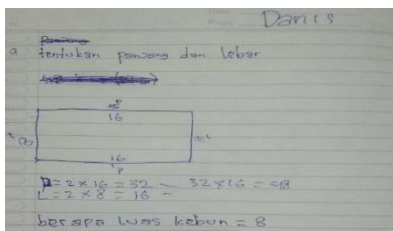 Danis
a. tentukan panjang dan lebar
16
16
P
P = 2 x 16 = 32 32 x 16 = 48
L = 2 x 8 = 16
berapa luas kebun = 8